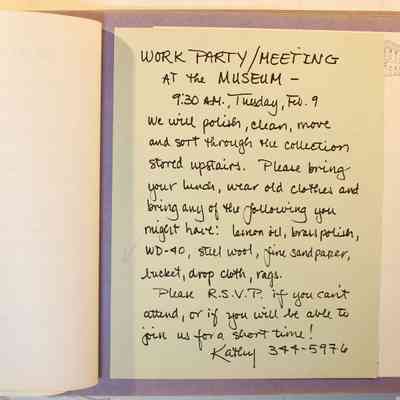 WORK PARTY/MEETING
AT the MUSEUM –
9:30 A.M., Tuesday, Feb. 9
We will polish, clean, move
and sort through the collection
stored upstairs. Please bring
your lunch, wear old clothes and
bring any of the following you
might have: lemon oil, brass polish,
WD-40, steel wool, fine sandpaper,
bucket, drop cloth, rags.
Please R.S.V.P. if you can't
attend, or if you will be able to
join us for a short time!
Kathy 344-5976